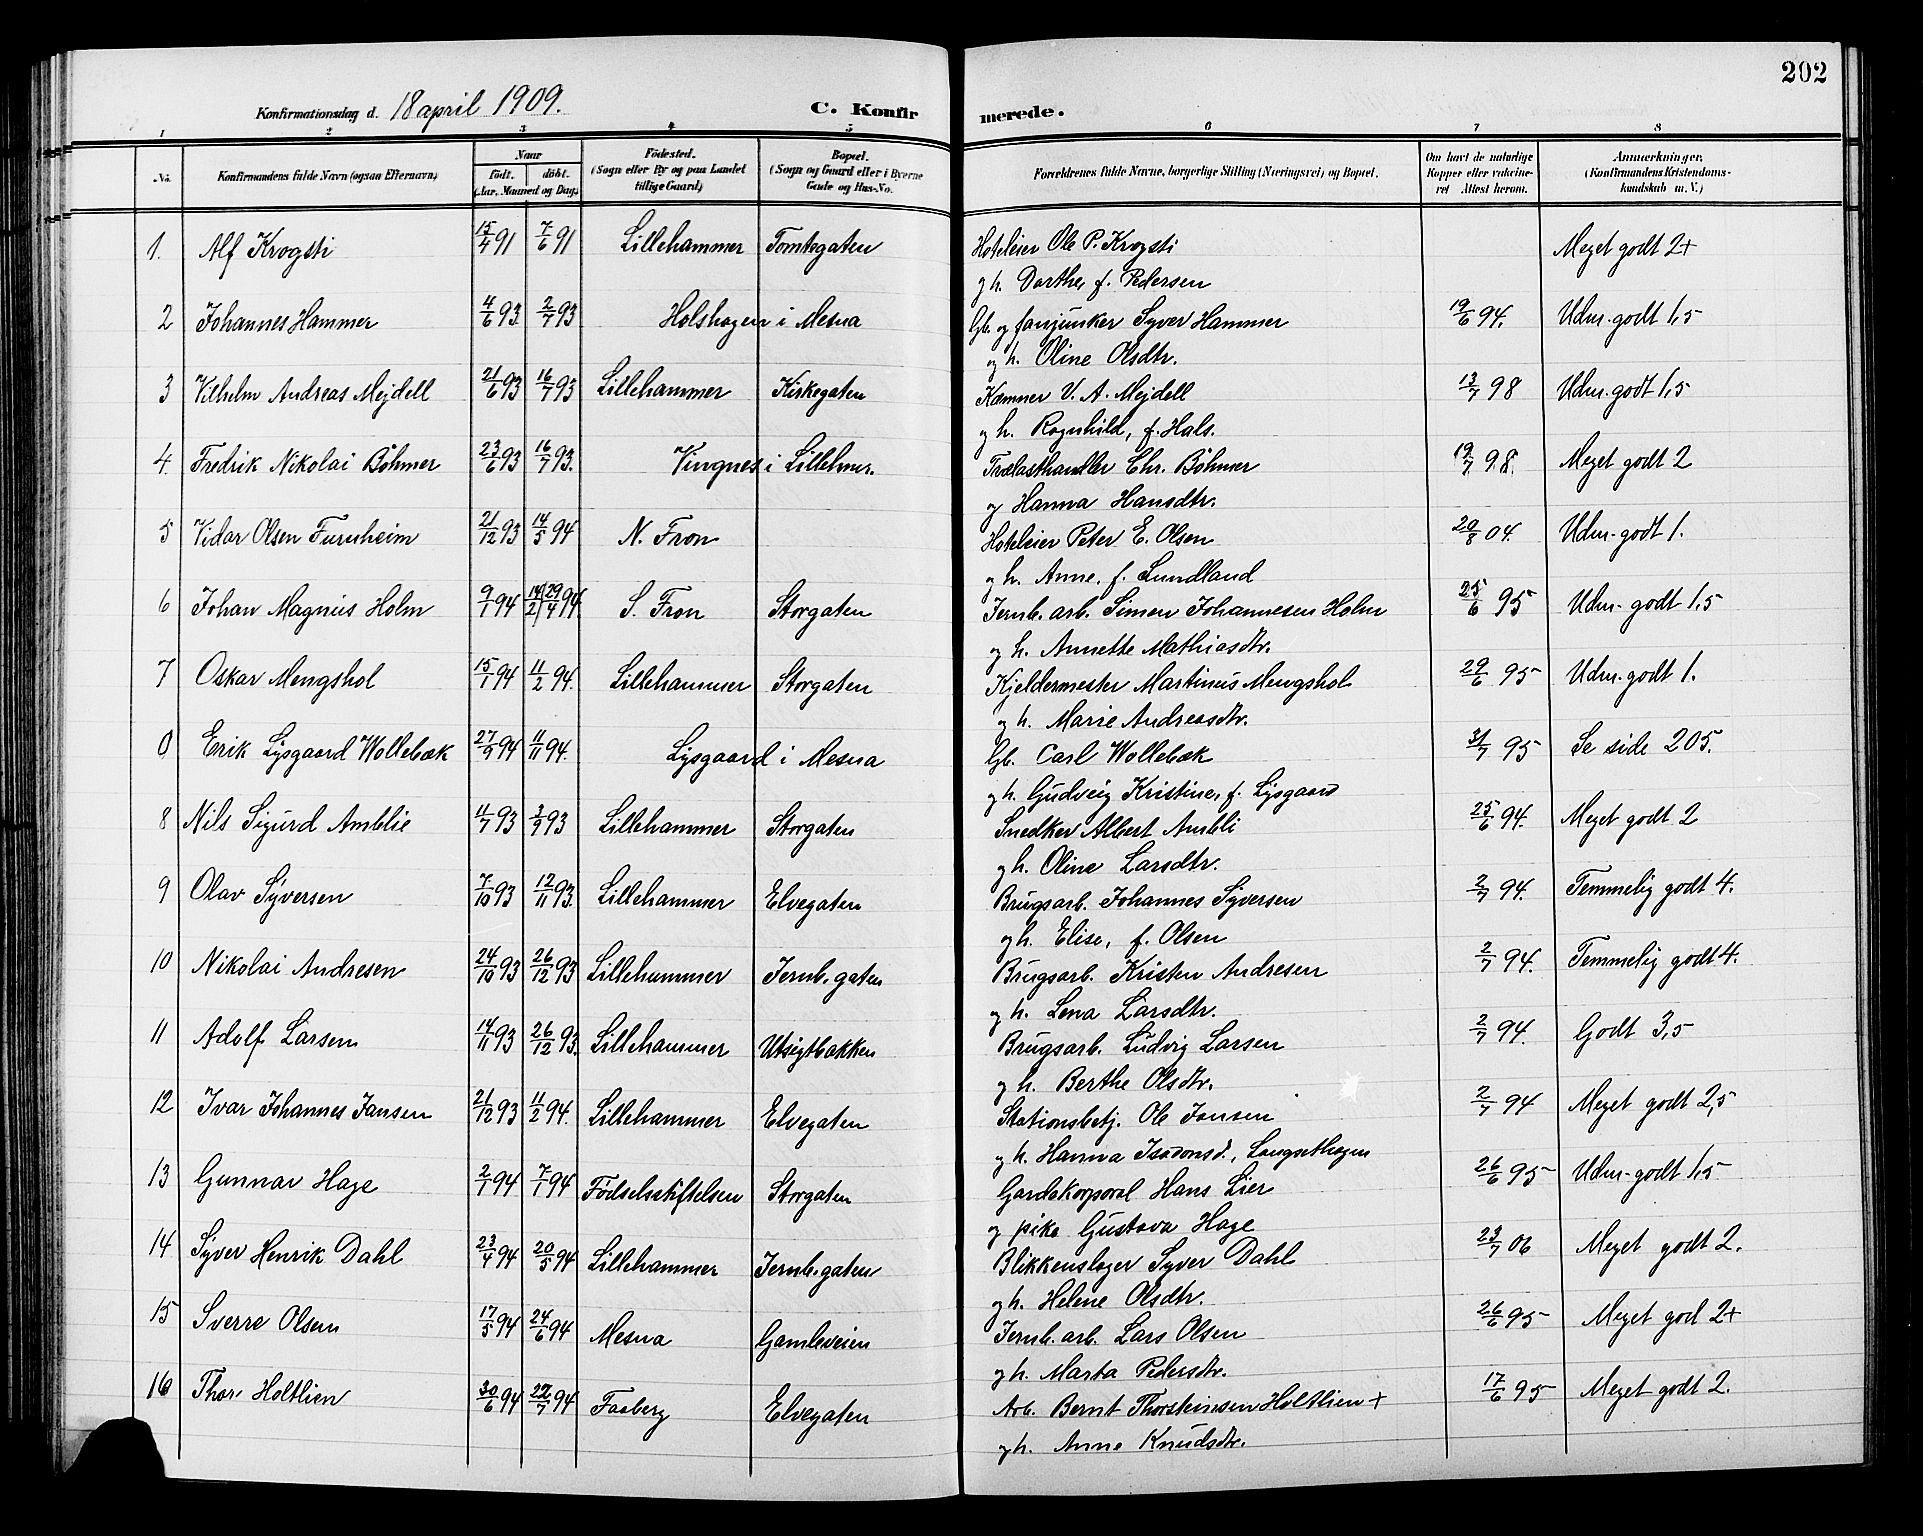 202
Konfirmationsdag d. 18 april 1909. C. Konfirmerede.
1 2 3 4 5 6 7 8
No. Konfirmandens fulde Navn (ogsaa Efternavn) Naar født. døbt. (Aar, Maaned og Dag) Fødested. (Sogn eller By og paa Landet tillige Gaard) Bopæl. (Sogn og Gaard eller i Byerne Gade og Hus-No. Forældrenes fulde Navne, borgerlige Stilling (Næringsvei) og Bopæl. Om havt de naturlige Kopper eller vakcineret. Attest herom. Anmerkninger. (Konfirmandens Kristendomskundskab m. V.)
1. Alf Krogsti 15/4 91 7/6 91 Lillehammer Tomtegaten Hoteleier Ole P. Krogsti Meget godt 2+
og h. Dorthe, f. Pedersen
2 Johannes Hammer 4/6 93 2/7 93 Holshagen i Mesna Gb. og fanejunker Syver Hammer 19/6 94. Udm. godt 1,5
og h. Oline Olsdtr.
3 Vilhelm Andreas Mejdell 21/6 93 16/7 93 Lillehammer Kirkegaten Kæmner V. A. Mejdell 13/7 98 Udm. godt 1,5
og h. Ragnhild, f. Hals.
4. Fredrik Nikolai Böhmer 23/6 93 16/7 93. Vingnes i Lillehmr. Trælasthandler Chr. Böhmer 19/7 98. Meget godt 2
og Hanna Hansdtr.
5 Vidar Olsen Furuheim 21/12 93 14/5 94 N. Fron Hoteleier Peter E. Olsen 20/8 04. Udm. godt 1.
og h. Anne, f. Lundland
6 Johan Magnus Holm 9/1 94 14/2 29/4 94. S. Fron Storgaten Jernb. arb. Simen Johannesen Holm 25/6 95 Udm. godt 1,5
og h. Annette Mathiasdtr.
7 Oskar Mengshol 15/1 94 11/2 94. Lillehammer Storgaten Kjeldermester Martinus Mengshol 29/6 95 Udm. godt 1.
og h. Marie Andreasdtr.
0 Erik Lysgaard Wollebæk 27/9 94 11/11 94. Lysgaard i Mesna Gb. Carl Wollebæk 31/7 95 Se side 205.
og h. Gudveig Kristine, f. Lysgaard
8 Nils Sigurd Amblie 11/7 93 3/9 93 Lillehammer Storgaten Snedker Albert Ambli 25/6 94. Meget godt 2
og h. Oline Larsdtr.
9 Olav Syversen 7/10 93 12/11 93. Lillehammer Elvegaten Brugsarb. Johannes Syversen 2/7 94. Temmelig godt 4.
og h. Elise, f. Olsen
10 Nikolai Andresen 24/10 93 26/12 93 Lillehammer Jernb. gaten Brugsarb. Kristen Andresen 2/7 94. Temmelig godt 4.
og h. Lena Larsdtr.
11 Adolf Larsen 14/11 93 26/12 93. Lillehammer Utsigtbakken Brugsarb. Ludvig Larsen 2/7 94. Godt 3,5
og h. Berthe Olsdtr.
12 Ivar Johannes Jansen 21/12 93 11/2 94. Lillehammer Elvegaten Stationsbetj. Ole Jansen 2/7 94 Meget godt 2,5
og h. Hanna Langsethagen
13 Gunnar Hage 2/1 94 7/1 94 Födselsstiftelsen Storgaten Gardekorporal Hans Lier 26/6 95 Udm. godt 1,5
og pike Gustava Hage
14 Syver Henrik Dahl 23/4 94 20/5 94 Lillehammer Jernb. gaten Blikkenslager Syver Dahl 23/7 06 Meget godt 2.
og h. Helene Olsdtr.
15 Sverre Olsen 17/5 94 24/6 94 Mesna Gamleveien Jernb. arb. Lars Olsen 26/6 95 Meget god 2+
og h. Marta Pedersdtr.
16 Thor Holtlien 30/6 94 22/7 94 Faaberg Elvegaten Arb. Bernt Thorsteinsen Holtlien + 17/6 95 Meget godt 2.
og h. Anne Knudsdtr.